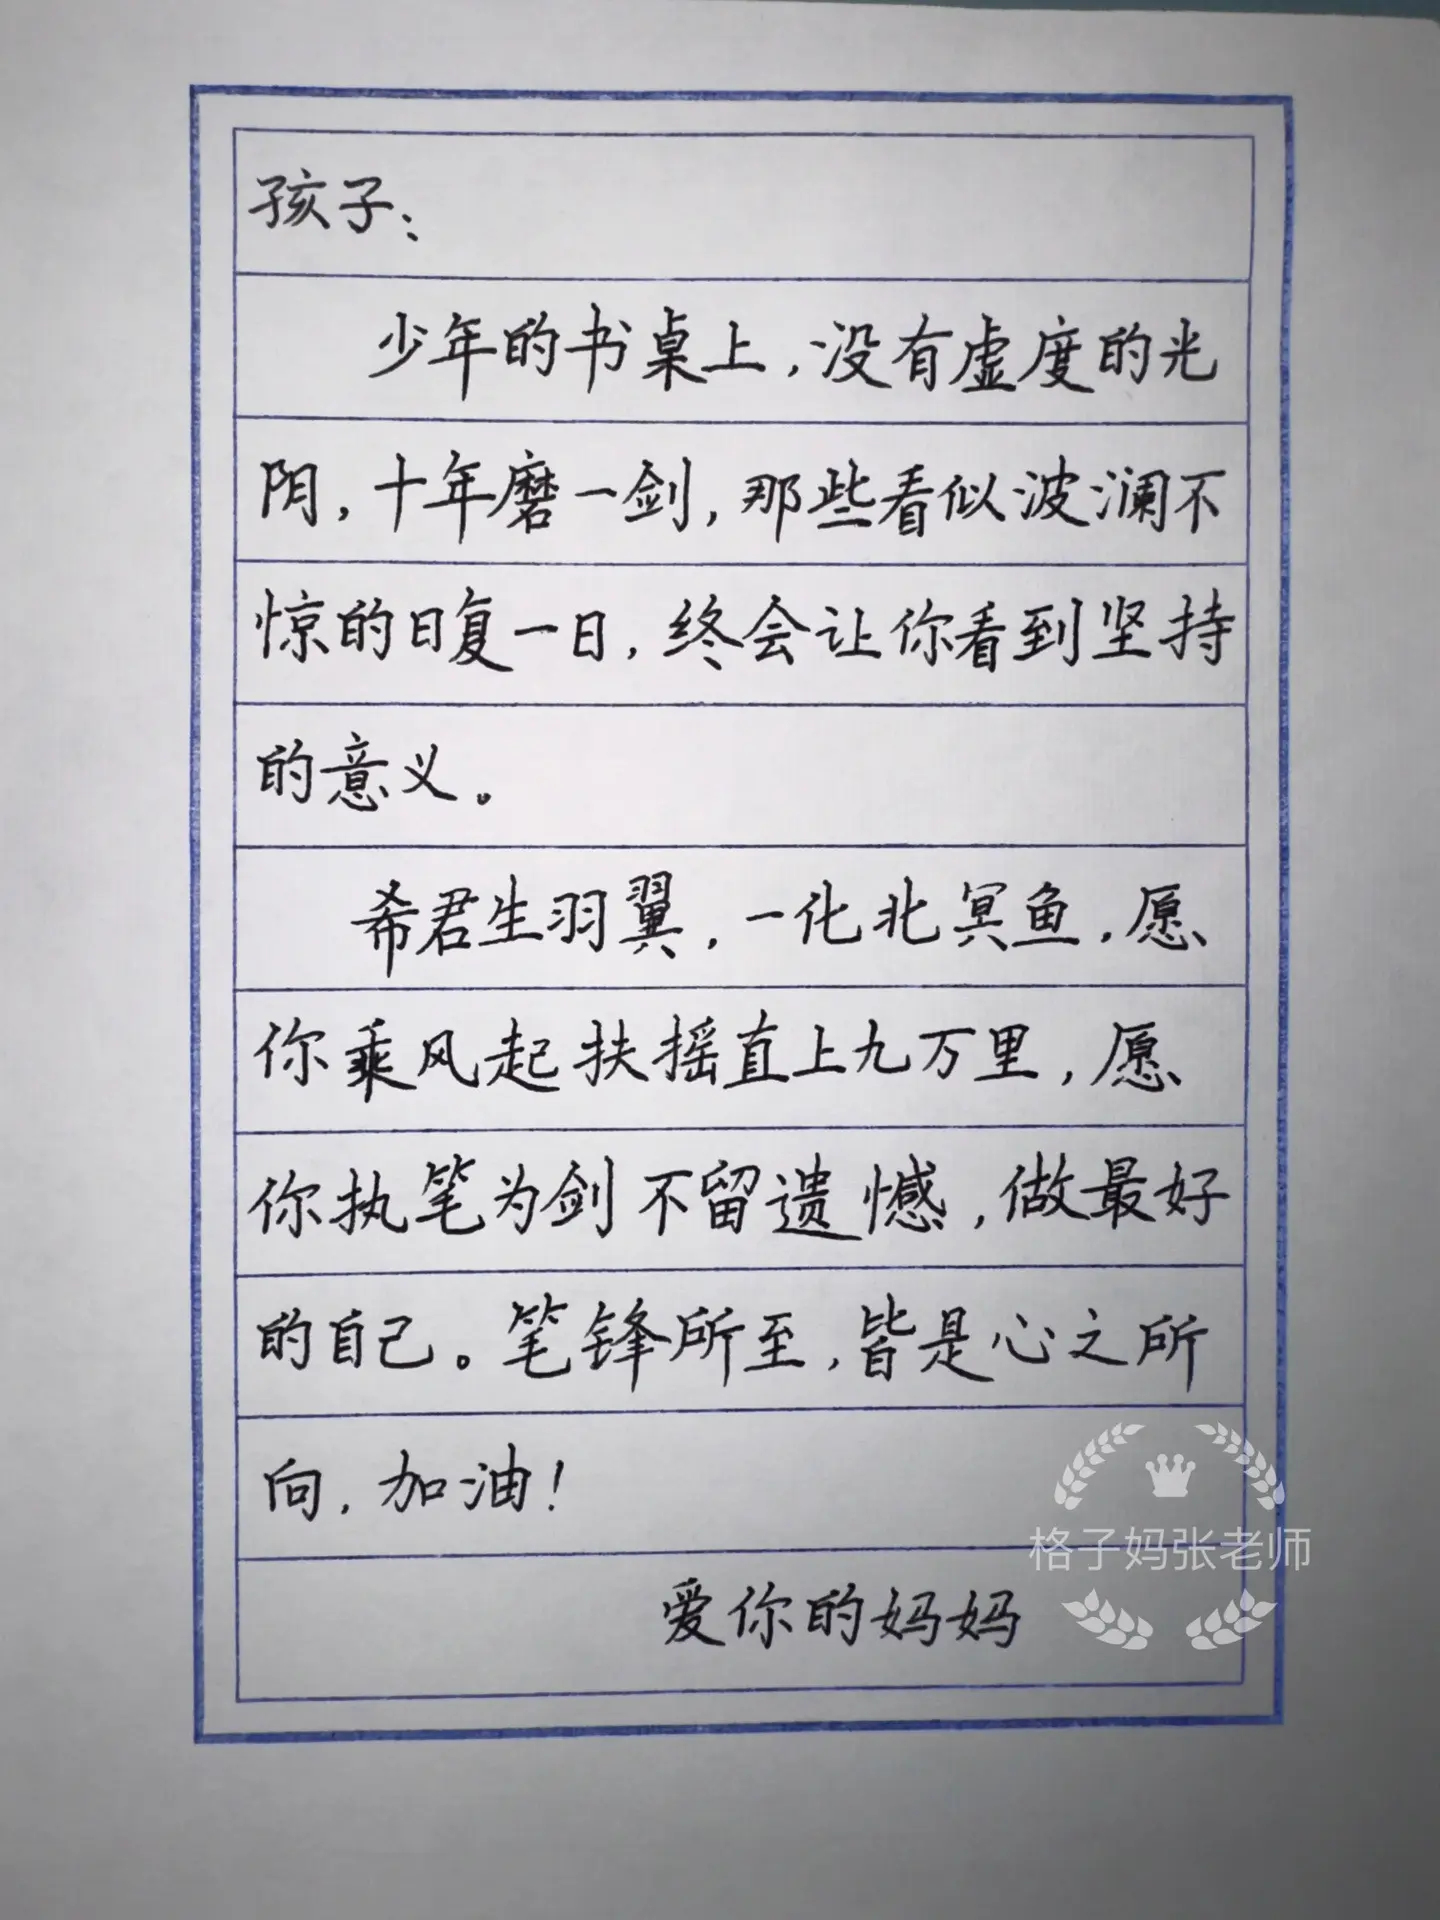 孩子：
少年的书桌上，没有虚度的光
阴，十年磨一剑，那些看似波澜不
惊的日复一日，终会让你看到坚持
的意义。
希君生羽翼，一化北冥鱼，愿
你乘风起扶摇直上九万里，愿
你执笔为剑不留遗憾，做最好
的自己。笔锋所至，皆是心之所
向，加油！
格子妈张老师
爱你的妈妈